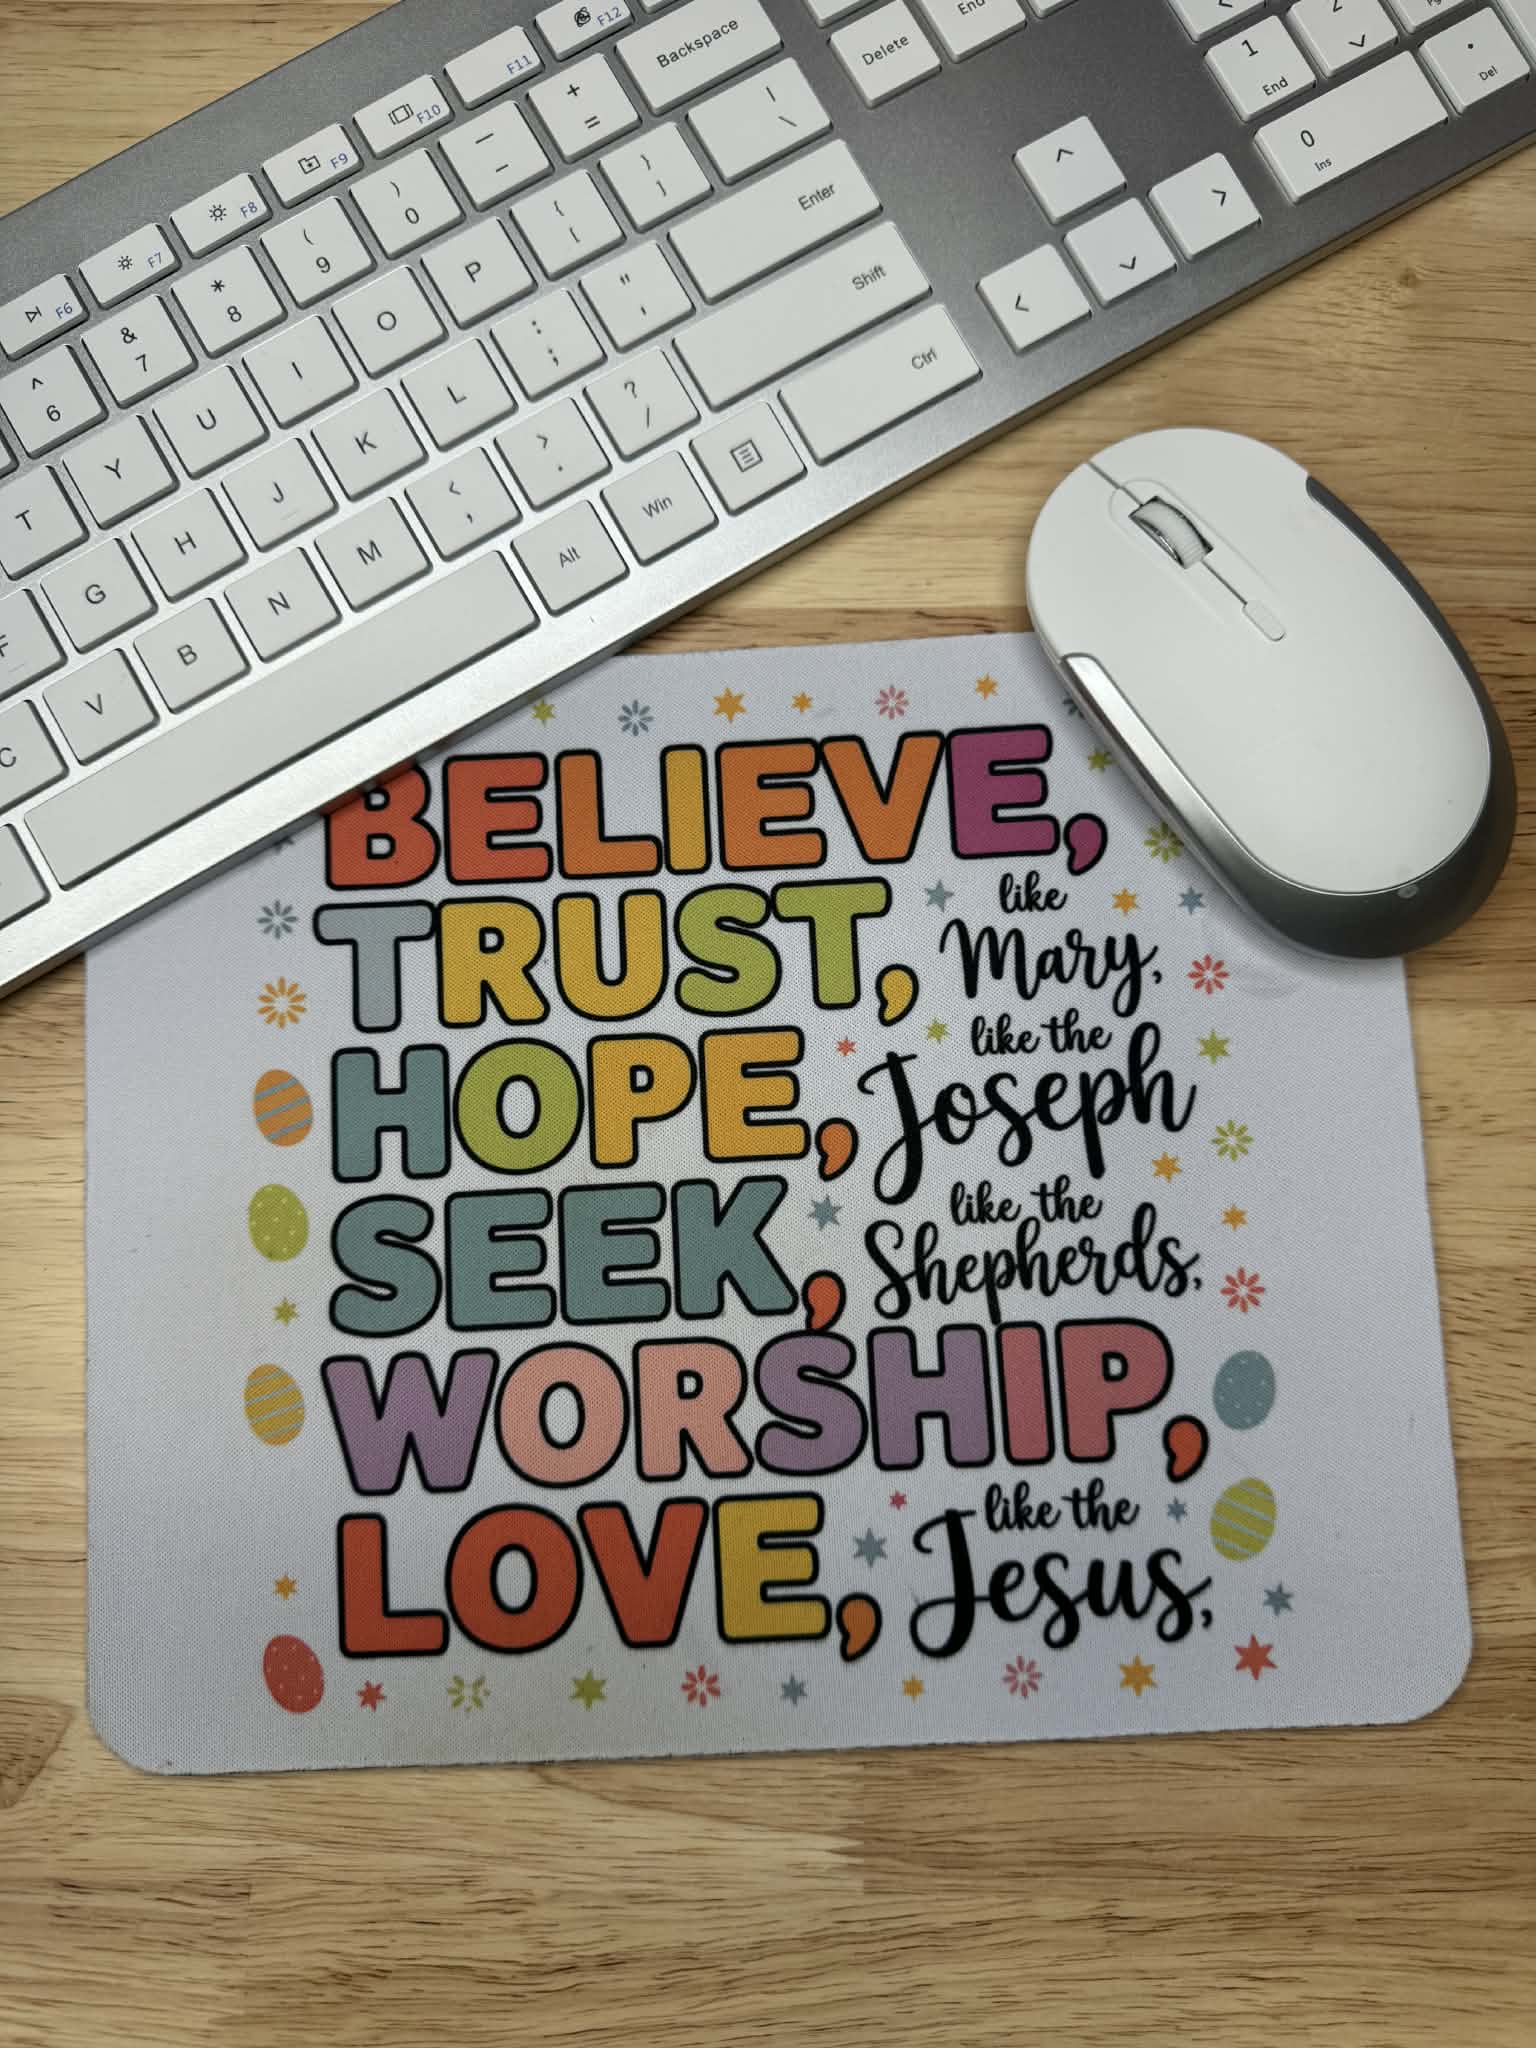 F12
F11
Backspace
Delete
End
F10
+
=
|
\
1
End
2
.
Del
F9
—
_
}
]
Enter
0
Ins
F8
)
0
{
[
F7
(
9
P
"
'
Shift
F6
*
8
O
:
;
Ctrl
&
7
I
L
?
/
^
6
U
K
>
.
Y
J
<
,
Win
T
H
M
Alt
G
N
F
B
V
C
BELIEVE,
TRUST, like Mary,
HOPE, like the Joseph
SEEK, like the Shepherds,
WORSHIP,
LOVE, like the Jesus,